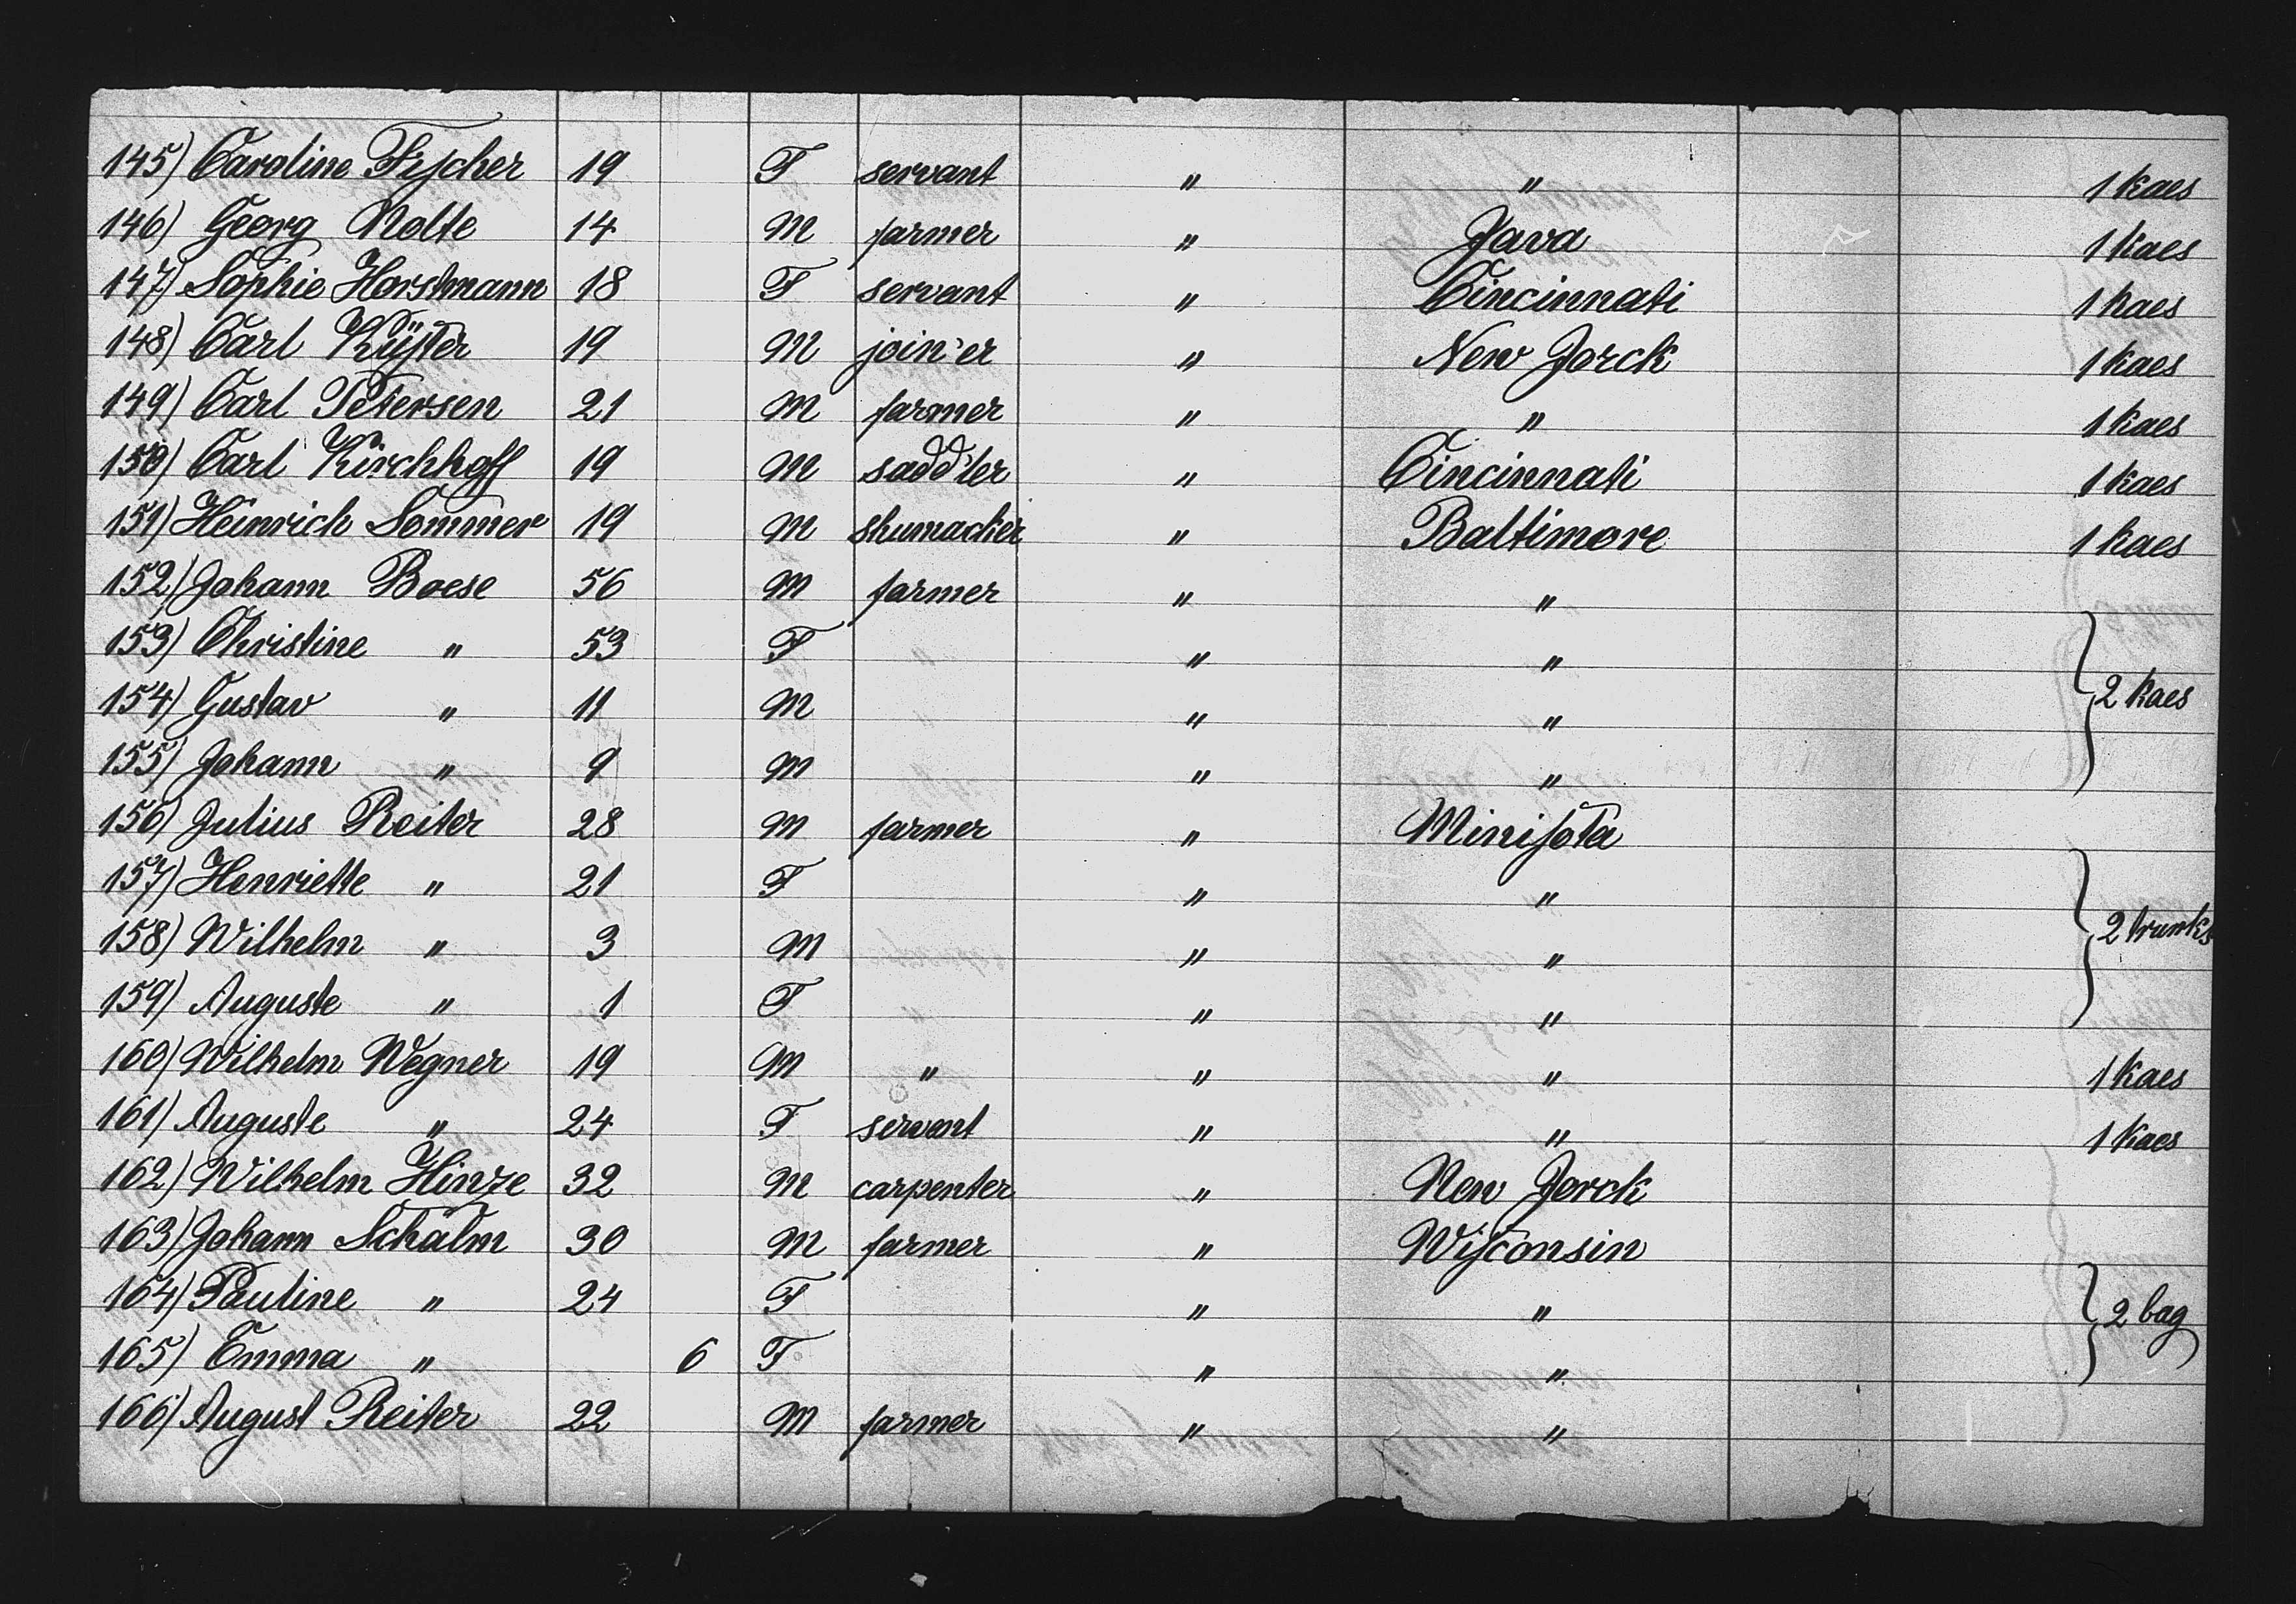 145) Caroline Fischer 19 F servant " " 1 kaes
146) Georg Nolte 14 M farmer " Java 1 kaes
147) Sophie Horstmann 18 F servant " Cincinnati 1 kaes
148) Carl Küster 19 M join'er " New Jorck 1 kaes
149) Carl Petersen 21 M farmer " " 1 kaes
150) Carl Kirchhoff 19 M sadd'ler " Cincinnati 1 kaes
151) Heinrich Sommer 19 M shumacker " Baltimore 1 kaes
152) Johann Boese 56 M farmer " "
153) Christine " 53 F " "
154) Gustav " 11 M " " 2 kaes
155) Johann " 9 M " "
156) Julius Reiter 28 M farmer " Minisota
157) Henriette " 21 F " "
158) Wilhelm " 3 M " " 2 trunks
159) Auguste " 1 F " "
160) Wilhelm Wegner 19 M " " " 1 kaes
161) Auguste " 24 F servant " " 1 kaes
162) Wilhelm Hinze 32 M carpenter " New Jorck
163) Johann Schalm 30 M farmer " Wisconsin
164) Pauline " 24 F " " 2 bag
165) Emma " 6 F " "
166) August Reiter 22 M farmer " "